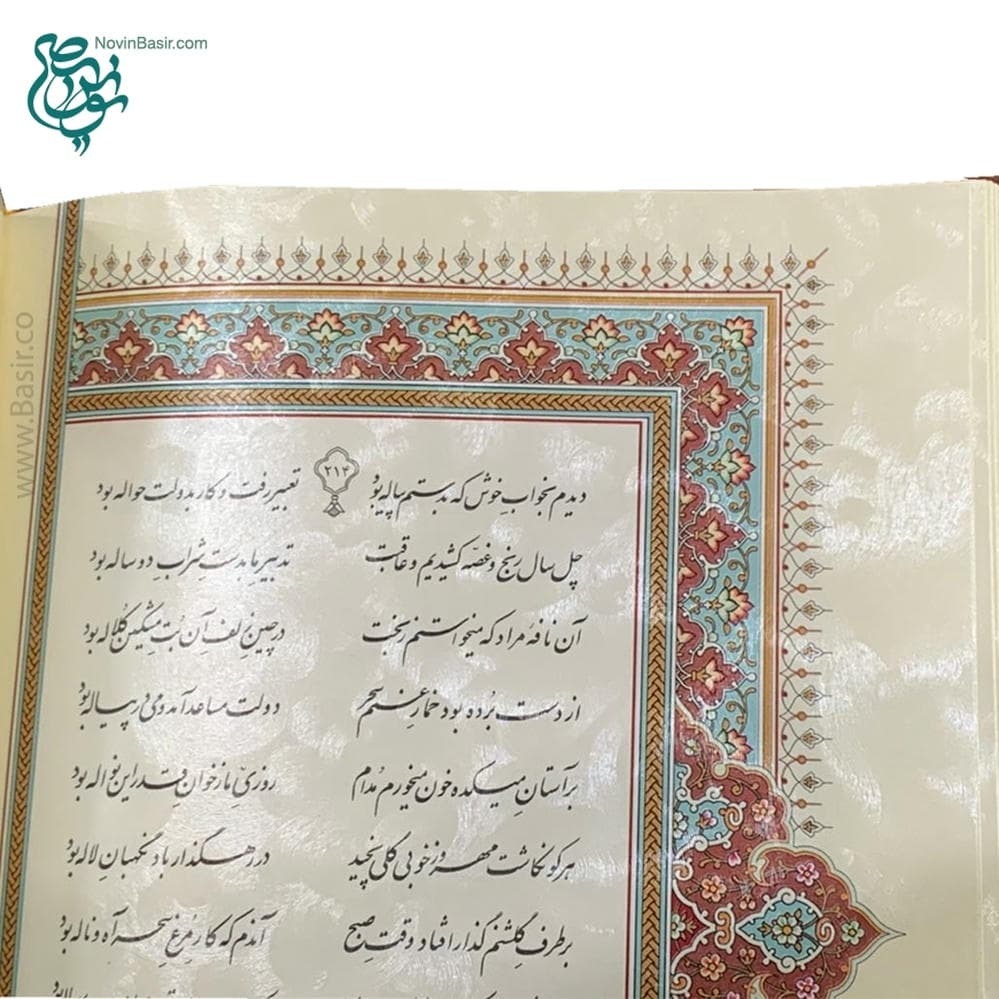 NovinBasir.com
نوین بصیر
www.Basir.co
۲۱۴
دیدم بخواب خوش که بدستم پیاله بود تعبیر رفت و کار بدولت حواله بود
چل سال رنج و غصّه کشیدیم و عاقبت تدبیر ما بدستِ شرابِ دو ساله بود
آن نافهٔ مراد که میخواستم ز بخت در چینِ زلفِ آن بُتِ مشکین کُلاله بود
از دست بُرده بود خمارِ غمم سحر دولت مساعد آمد و می در پیاله بود
بر آستانِ میکده خون میخورم مُدام روزیِّ ما ز خوانِ قدر این نواله بود
هر کو نکاشت مهر و ز خوبی گلی نچید در رهگذارِ باد نگهبانِ لاله بود
بر طرفِ گلشنم گذار افتاد وقتِ صبح آندم که کارِ مُرغِ سحر آه و ناله بود